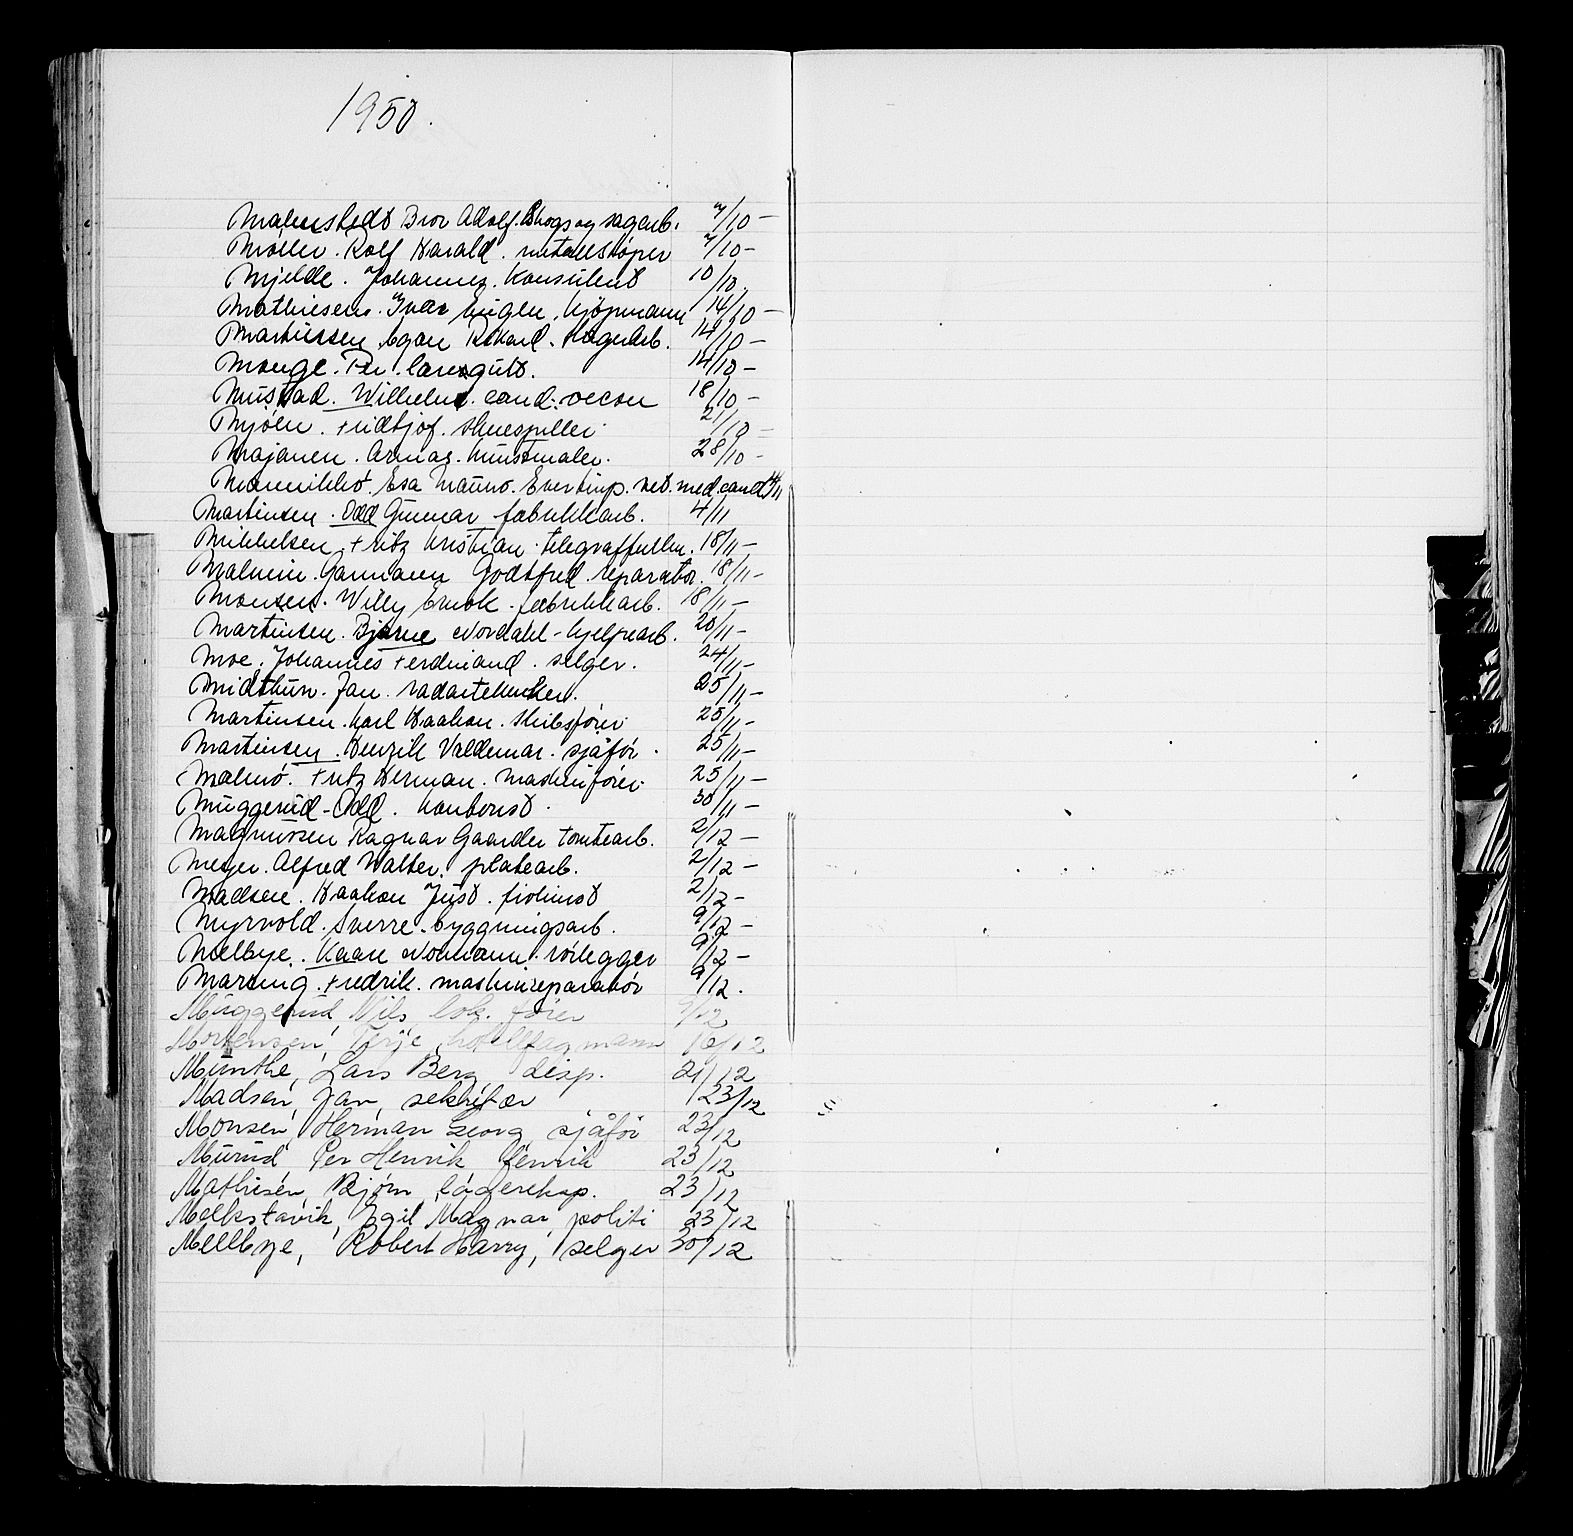 1950.
Malmstedt Bror Adolf. Skogs og sagarb. 7/10 –
Møller. Rolf Harald. metallstøper 7/10 –
Mjelde. Johannes. Konsulent 10/10.
Mathiesen. Ivar Eugen. kjøpmann 14/10 –
Martiessen Egon Rikard. Lagerarb. 14/10 –
Monge. Per. læregutt. 14/10 –
Mustad. Wilhelm. cand. oecon 18/10 –
Mjøen. Fridtjof. skuespiller. 21/10 –
Majanen. Armas. Kunstmaler. 28/10 –
Mannikkö. Esa Mauno. vet. med. cand. 4/11
Martinsen. Odd Gunnar fabrikkarb. 4/11
Mikkelsen Fritz Kristian. telegraffullm. 18/11 –
Malmin. Garmann Godtfred. reparatør. 18/11 –
Monsen. Willy Enok. fabrikkarb. 18/11 –
Martinsen. Bjarne Nordahl – hjelpearb. 20/11 –
Moe. Johannes Ferdinand. selger. 24/11 –
Midthun. Jan. radartekniker. 25/11 –
Martinsen. Karl Haakon. Skibsfører. 25/11 –
Martinsen. Henrik Valdemar. sjåfør. 25/11 –
Malmö. Fritz Herman. Maskinfører. 25/11 –
Muggerud – Odd. Kontorist. 30/11 –
Magnussen Ragnar Gaarder tomtearb. 2/12 –
Meyer. Alfred Walter. platearb. 2/12 –
Madsen. Haakon Just. fiolinist 2/12 –
Myrvold. Sverre. byggningsarb. 9/12 –
Melbye. Kaare Normann. rørlegger 9/12 –
Maring. Fredrik. maskinreparatør 9/12.
Muggerud Nils lok. fører 9/12
Mortensen, Terje, hotellfagmann 16/12
Munthe, Lars Berg disp. 21/12
Madsen, Jan, sekretær 23/12
Monsen, Herman Georg sjåfør 23/12
Murud Per Henrik fenrik 23/12
Mathisen, Bjørn lagereksp. 23/12
Melkstavik, Egil Magnar politi 23/12
Mellbye, Robert Harry, selger 30/12